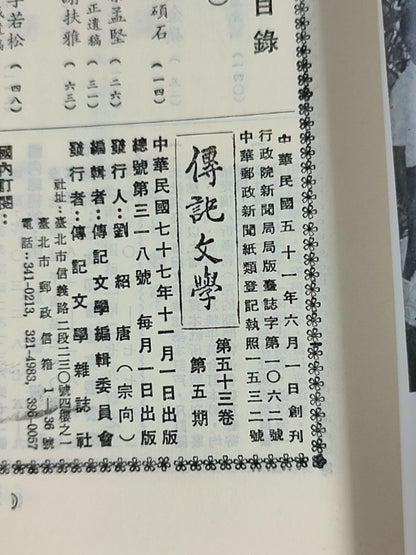 目錄
碩石
(一四)
孟堅
(二六)
正遺稿
(三一)
謝扶雅
(六三)
李若松
(四八)
中華民國五十一年六月一日創刊
行政院新聞局局版臺誌字第一〇六二號
中華郵政新聞紙類登記執照一五三二號
傳記文學
第五十三卷
第五期
中華民國七十七年十一月一日出版
總號第三一八號 每月一日出版
發行人:劉紹唐(宗向)
編輯者:傳記文學編輯委員會
發行者:傳記文學雜誌社
社址:臺北市信義路二段二三〇號四樓之一
臺北市郵政信箱1—36號
電話:341-0213, 321-4983, 396-0067
國內訂閱: